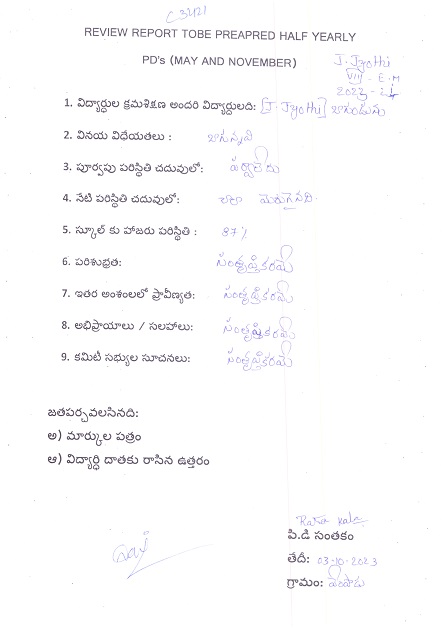 C3421
REVIEW REPORT TOBE PREAPRED HALF YEARLY
PD's (MAY AND NOVEMBER)
J. Jyothi
VIII - E.M
2023 - 24
1. విద్యార్ధుల క్రమశిక్షణ అందరి విద్యార్ధులది: [J. Jyothi] బాగుండును
2. వినయ విధేయతలు : బాగున్నవి
3. పూర్వపు పరిస్థితి చదువులో: పర్వాలేదు
4. నేటి పరిస్థితి చదువులో: చాలా మెరుగైనది.
5. స్కూల్ కు హాజరు పరిస్థితి : 87%
6. పరిశుభ్రత: సంతృప్తికరమే
7. ఇతర అంశంలలో ప్రావీణ్యత: సంతృప్తికరమే
8. అభిప్రాయాలు / సలహాలు: సంతృప్తికరమే
9. కమిటీ సభ్యుల సూచనలు: సంతృప్తికరమే
జతపర్చవలసినది:
అ) మార్కుల పత్రం
ఆ) విద్యార్ధి దాతకు రాసిన ఉత్తరం
పి.డి సంతకం
తేదీ: 03-10-2023
గ్రామం: